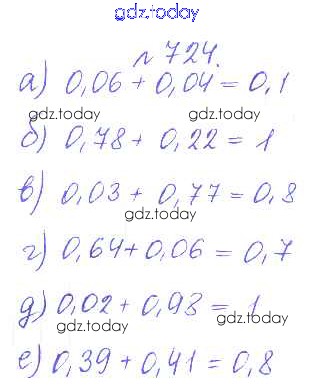 gdz.today
№ 724.
а) 0,06 + 0,04 = 0,1
gdz.today gdz.today
б) 0,78 + 0,22 = 1
gdz.today
в) 0,03 + 0,77 = 0,8
gdz.today
г) 0,64 + 0,06 = 0,7
gdz.today
д) 0,02 + 0,98 = 1
gdz.today gdz.today
е) 0,39 + 0,41 = 0,8